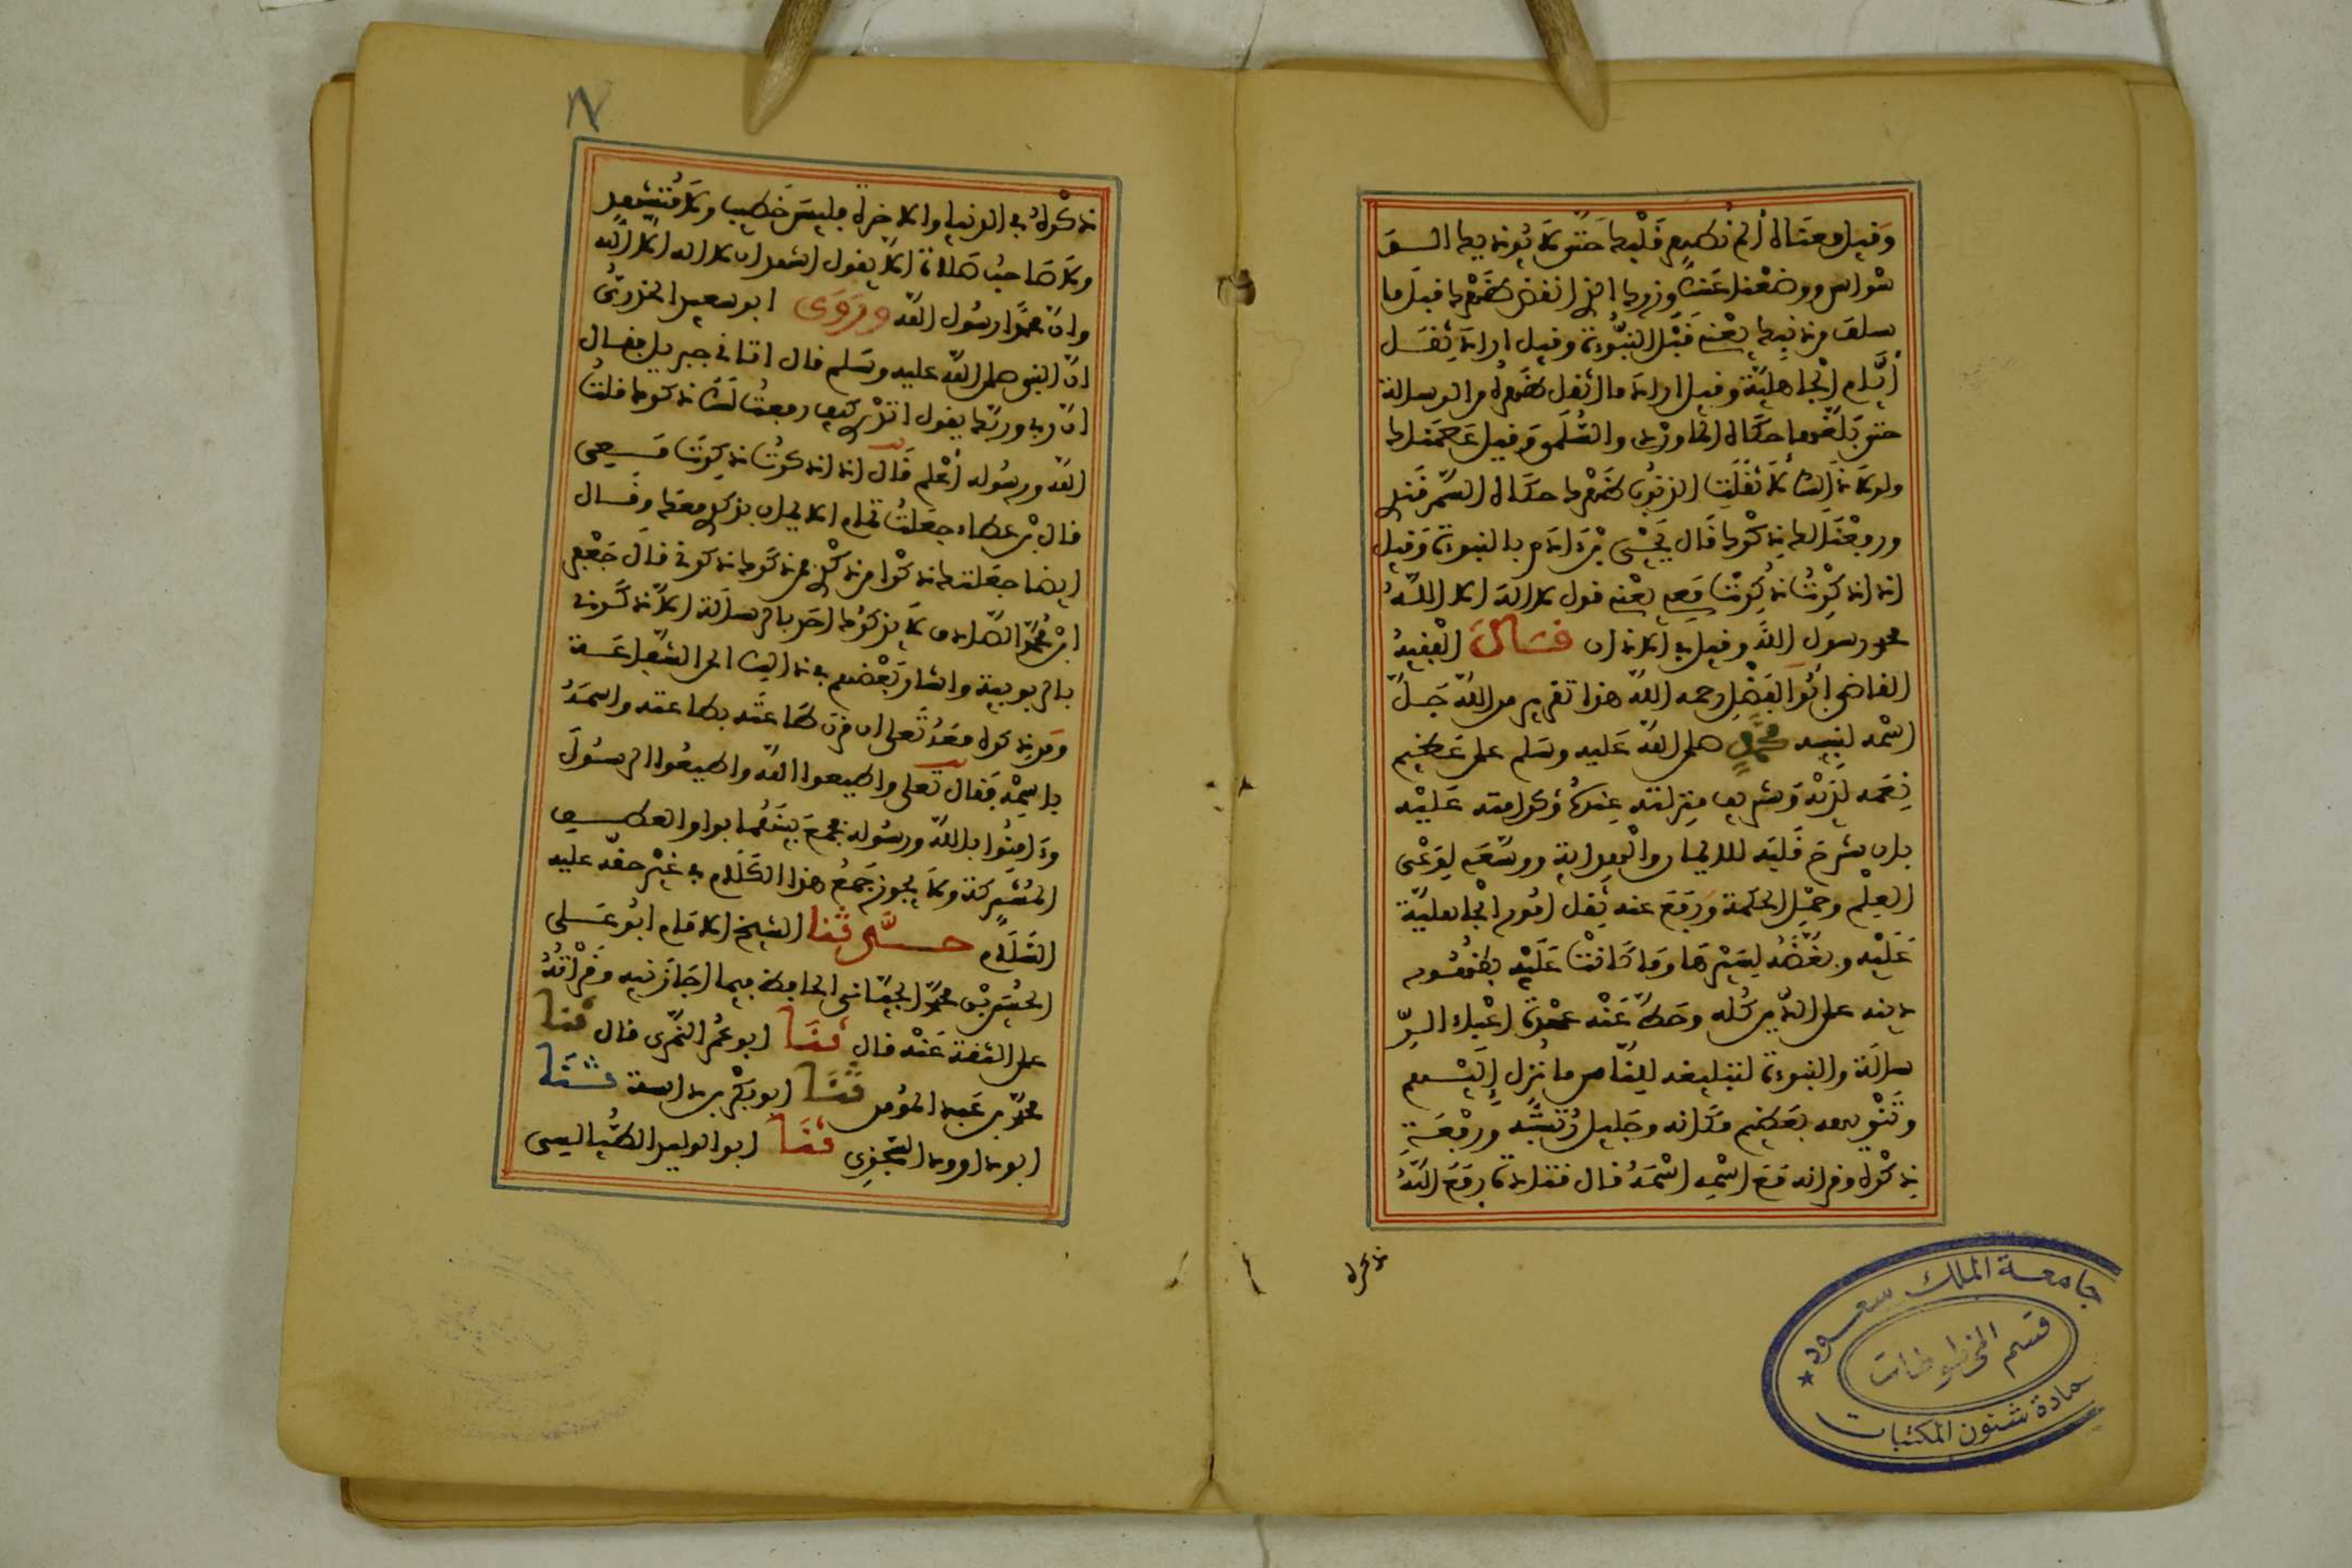 وقيل معناه ألم نطهر قلبك حتى لا يؤذيك الو
سواس ووضعنا عنك وزرك الذي انقض ظهرك قيل ما
سلف من ذنبك يعني قبل النبوءة وقيل اراد ثقل
أيام الجاهلية وقيل اراد ما اثقل ظهره من الرسالة
حتى بلغها حكاه الماوردي والسلمي وقيل عصمناك
ولولا ذلك لأثقلت الذنوب ظهرك حكاه السمرقندي
ورفعنا لك ذكرك قال يحيى بن ءادم بالنبوءة وقيل
اذا ذكرتُ ذكرتَ معي يعني قول لا اله الا الله
محمد رسول الله وقيل في الاذان قال الفقيه
القاضي أبو الفضل رحمه الله هذا تقرير من الله جل
اسمه لنبيه محمد صلى الله عليه وسلم على عظيم
نعمه لديه وشريف منزلته عنده وكرامته عليه
بان شرح قلبه للايمان والهداية ووسعه لوعي
العلم وحمل الحكمة ورفع عنه ثقل امور الجاهلية
عليه وبغضه لسيرها وما كانت عليه بظهور
دينه على الدين كله وحط عنه عهدة اعباء الر
سالة والنبوءة لتبليغه للناس ما نزل إليهم
وتنويهه بعظيم مكانه وجليل رتبته ورفعة
ذكره وقرانه مع اسمه اسمه قال قتادة رفع الله
ذكره
١٧
ذكره في الدنيا والاخرة فليس خطيب ولا متشهد
ولا صاحب صلاة الا يقول اشهد ان لا اله الا الله
وان محمدا رسول الله وروى ابو سعيد الخدري
ان النبي صلى الله عليه وسلم قال اتاني جبريل فقال
ان ربي وربك يقول اتدري كيف رفعت لك ذكرك قلت
الله ورسوله أعلم قال اذا ذكرتُ ذكرتَ معي
قال بن عطاء جعلت تمام الايمان بذكري معك وقال
ايضا جعلتك ذكرا من ذكري فمن ذكرك ذكرني قال جعفر
ابن محمد الصادق لا يذكرك احد بالرسالة الا ذكرني
بالربوبية واشار بعضهم في ذلك الى الشفاعة
ومن ذكره معه تعلى ان قرن طاعته بطاعته واسمه
باسمه فقال تعلى واطيعوا الله واطيعوا الرسول
وءامنوا بالله ورسوله فجمع بينهما بواو العطف
المشركة ولا يجوز جمع هذا الكلام في غير حقه عليه
السلام حدثنا الشيخ الامام ابو علي
الحسين بن محمد الجياني الحافظ فيما اجازنيه وقرأته
على الثقة عنه قال ثنا ابو عمر النمري قال ثنا
محمد بن عبد المومن ثنا ابو بكر بن داسة ثنا
ابو داوود السجزي ثنا ابو الوليد الطيالسي
جامعة الملك سعود
قسم المخطوطات
عمادة شئون المكتبات